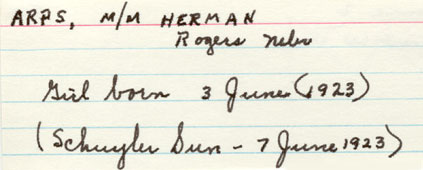 ARPS, M/M HERMAN
Rogers Nebr
Girl born 3 June (1923)
(Schuyler Sun - 7 June 1923)